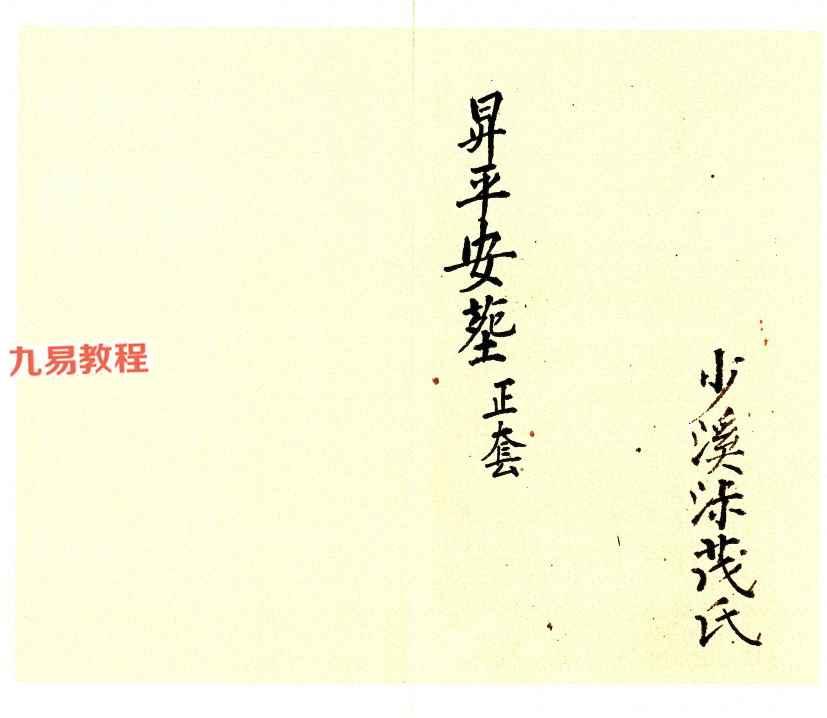 少溪沐茂氏
昇平安塟正套
九易教程